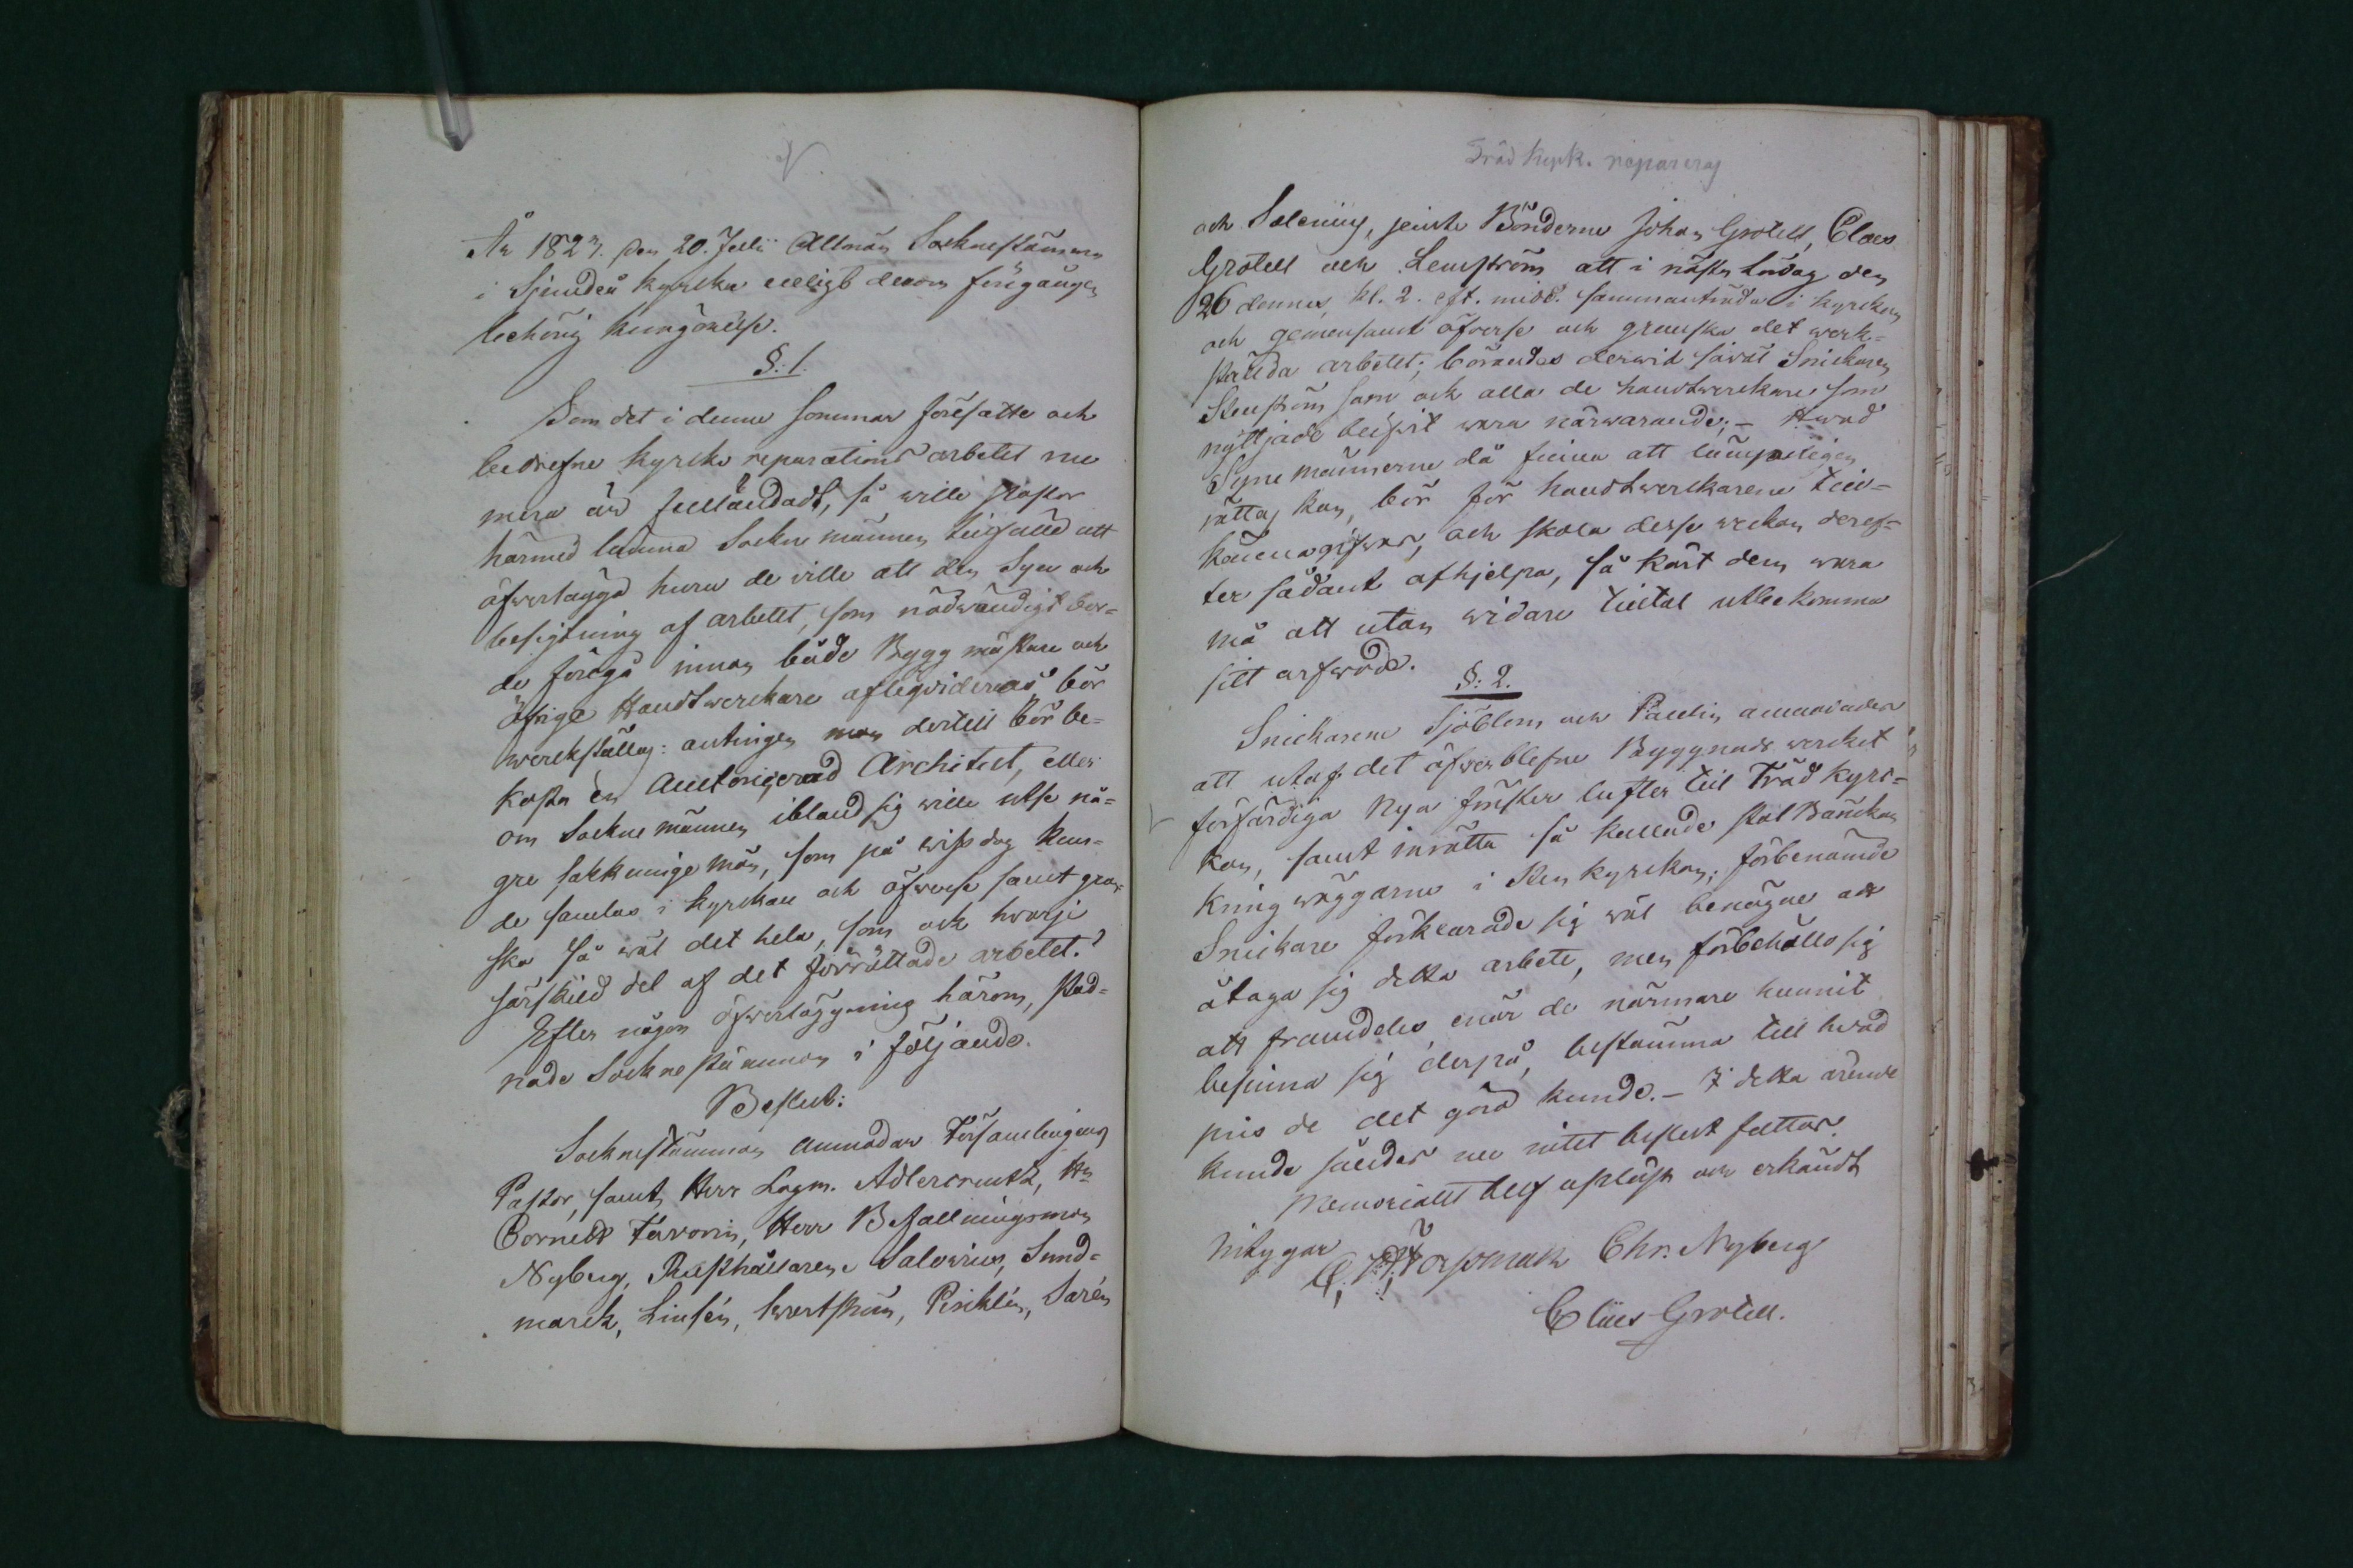 År 1823. den 20. Julii Allmän Sockenstämma
i Sjundeå kyrcka enligt derom föregången
behörig kungörelse.
§: 1.
Som det i denne sommarföresatte och
bedrefne kyrcko reparations arbetet nu
mera är fulländadt, så wille Pastor
härmed lemna Sockne männen tilfälle att
öfwerlägga huru de wille att den Syn och
besigtning af arbetet, som nödwändigt bor-
de föregå innan både Byggmästare och
öfrige Handtwerckare afliqvideras, bör
werckställas: antingen man dertill bör be-
kosta en Auctoriserad Architect, eller
om Sockne männen ibland sig wille utse nå-
gre sakkunnige män, som på wiss dag kun-
de samlas i kyrckan och öfwerse samt gran-
ska så wäl det hela, som ock hvarje
särskild del af det förrättade arbetet?
Efter någon öfwerläggning härom, stad-
nade Sockne stämman i följande
Beslut:
Socknestämman anmodar Församlingens
Pastor, samt Herr Lagm. Adlercreutz, Hr
Cornett Toworin, Herr Befallningsman
Nyberg, Rusthållarene Salovius, Sund-
marck, Linsén, Kvortström, Pesiklén, Sarén
Träd kyrk. repareras
och Salenius, jemte Bönderne Johan Grotell, Claes
Grotell och Lemström att i nästa Lördag den
26 dennes kl. 2. eft. midd. sammanträda i kyrckan
och gemensamt öfverse och granska det werk-
stälda arbetet; börandes derwid såväl Snickaren
Stenström som och alla de handtwerckare som
nyttjade blifwit wara närwarande; - Hwad
Syne männerne då finna att lämpeligen
rättas kan, bör för handtwerckarene till-
kännagifwas, och skola desse weckan deref-
ter sådant afhjelpa, så kärt dem wara
må att utan widare tiltal utbekomma
sitt arfwode.
§: 2.
Snickarene Sjöblom och Paulin anmodades
att utaf det öfwerblefne Byggnads wercket
förfärdiga Nya fönster lufter till Träd kyrc-
kan, samt inrätta så kallade stol Bänckar
kring wäggarne i Sten kyrckan; förbenämde
Snickare förklarade sig wäl benägne att
åtaga sig detta arbete, men förbehöllo sig
att framdeles enär de närmare hunnit
besinna sig derpå, bestämma till hwad
pris de det göra kunde. - I detta ärende
kunde således nu intet beslut fattas.
Memorialet blef uplist och erkändt
intygar
Chr. Nyberg
Claes Grotell.